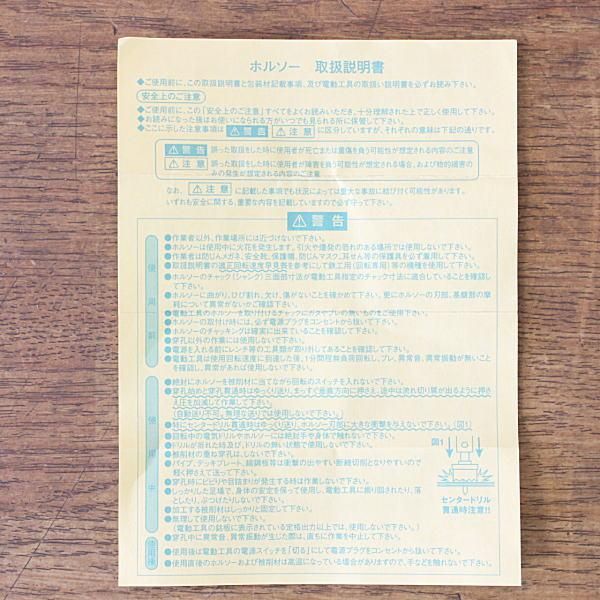 ホルソー 取扱説明書
◆ご使用前に、この取扱説明書と包装材記載事項、及び電動工具の取扱い説明書を必ずお読み下さい。
安全上のご注意
◆ご使用前に、この「安全上のご注意」すべてをよくお読みいただき、十分理解された上で正しく使用して下さい。
◆お読みになった後はお使いになられる方がいつでも見られる所に保管して下さい。
◆ここに示した注意事項は ⚠警告 ⚠注意 に区分していますが、それぞれの意味は下記の通りです。
⚠警告 誤った取扱をした時に使用者が死亡または重傷を負う可能性が想定される内容のご注意
⚠注意 誤った取扱をした時に使用者が障害を負う可能性が想定される場合、および物的損害のみの発生が想定される内容のご注意
なお、⚠注意 に記載した事項でも状況によっては重大な事故に結び付く可能性があります。
いずれも安全に関する、重要な内容を記載していますので必ず守って下さい。
⚠警告
使用前
●作業者以外、作業場所には近づけないで下さい。
●ホルソーは使用中に火花を発生します、引火や爆発の恐れのある場所では使用しないで下さい。
●作業者は防じんメガネ、安全靴、保護帽、防じんマスク、耳せん等の保護具を必ず着用して下さい。
●取扱説明書の適正回転速度早見表を参考にして鉄工用(回転専用)等の機種を使用して下さい。
●ホルソーのチャック(シャンク)三面部寸法が電動工具指定のチャック寸法に適合していることを確認して下さい。
●ホルソーに曲がり、ひび割れ、欠け、傷がないことを確かめて下さい。更にホルソーの刃部、基盤部の摩耗について異常がないかご確認下さい。
●電動工具のホルソーを取り付けるチャックにガタやブレの無いものをご使用下さい。
●ホルソーの取付け時には、必ず電源プラグをコンセントから抜いて下さい。
●ホルソーのチャッキングは確実に出来ていることを確認して下さい。
●穿孔以外の作業には使用しないで下さい。
●電源を入れる前にレンチ等の工具類が取り外してあることを確認して下さい。
●電動工具は使用回転速度に到達した後、1分間程無負荷回転し、ブレ、異常音、異常振動が無いことを確認し、異常があれば使用しないで下さい。
使用中
●絶対にホルソーを被削材に当てながら回転のスイッチを入れないで下さい。
●穿孔始めと穿孔貫通時はゆっくり送り、まっすぐ垂直方向に押さえ、途中は流れ切り屑が出るように押さえ圧を加減して作業して下さい。
(自動送り不可。無理な送りでは使用しないで下さい。)
●特にセンタードリル貫通時はゆっくり送り、ホルソー刃部に大きな衝撃を与えないで下さい。(図1)
●回転中の電気ドリルやホルソーには絶対手や身体で触れないで下さい。
●ドリルが折れた時及び、ドリルの無い状態で使用しないで下さい。
●被削材の重ね穿孔は、しないで下さい。
●パイプ、デッキプレート、縞鋼板等は衝撃の出やすい断続切削となりやすいので軽く押さえて送って下さい。
●穿孔時にビビりや目詰まりが発生する時は作業しないで下さい。
●しっかりした足場で、身体の安定を保って使用し、電動工具に振り回されたり、落としたり、ぶつけたりしないで下さい。
●加工する被削材はしっかりと固定して下さい。
●無理して使用しないで下さい。
(電動工具の銘板に表示されている定格出力以上では、使用しないで下さい。)
●穿孔中に異常音、異常振動が生じた際は、直ちに作業を中止して下さい。
図1
センタードリル
貫通時注意!!
使用後
●使用後は電動工具の電源スイッチを「切る」にして電源プラグをコンセントから抜いて下さい。
●使用直後のホルソーおよび被削材は高温になっている場合がありますので、手などを触れないで下さい。